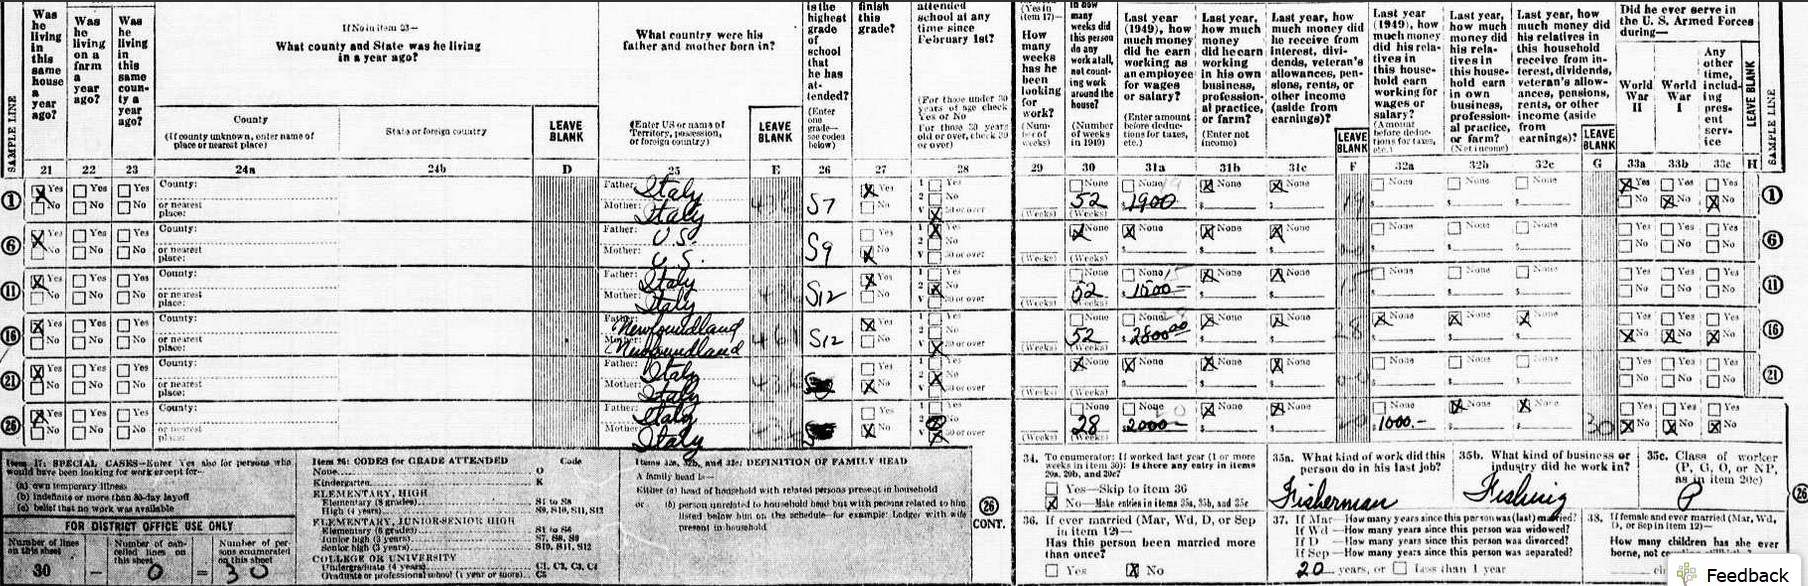 Was he living in this same house a year ago?
Was he living on a farm a year ago?
Was he living in this same coun- ty a year ago?
If No in item 23—
What county and State was he living in a year ago?
What country were his father and mother born in?
is the highest grade of school that he has at- tended?
(Enter one grade— see codes below)
finish this grade?
attended school at any time since February 1st?
(For those under 30 years of age check Yes or No
For those 30 years old or over, check 30 or over)
(Yes in item 17)—
How many weeks has he been looking for work?
(Num- ber of weeks)
In how many weeks did this person do any work at all, not count- ing work around the house?
(Number of weeks in 1949)
Last year (1949), how much money did he earn working as an employee for wages or salary?
(Enter amount before deduc- tions for taxes, etc.)
Last year, how much money did he earn working in his own business, profession- al practice, or farm?
(Enter net income)
Last year, how much money did he receive from interest, divi- dends, veteran's allowances, pen- sions, rents, or other income (aside from earnings)?
Last year (1949), how much money did his rela- tives in this house- hold earn working for wages or salary?
(Amount before deduc- tions for taxes, etc.)
Last year, how much money did his rela- tives in this house- hold earn in own business, profession- al practice, or farm?
(Net income)
Last year, how much money did his relatives in this household receive from in- terest, dividends, veteran's allow- ances, pensions, rents, or other income (aside from earnings)?
Did he ever serve in the U. S. Armed Forces during—
World War II
World War I
Any other time, includ- ing pres- ent serv- ice
SAMPLE LINE
County
(If county unknown, enter name of place or nearest place)
State or foreign country
LEAVE BLANK
(Enter US or name of Territory, possession, or foreign country)
LEAVE BLANK
LEAVE BLANK
LEAVE BLANK
LEAVE BLANK
SAMPLE LINE
21 22 23 24a 24b D 25 E 26 27 28 29 30 31a 31b 31c F 32a 32b 32c G 33a 33b 33c H
1 Yes Yes Yes County: Father: Italy Yes 1 Yes None None None None None None None Yes Yes Yes 1
No No No or nearest place: Mother: Italy S7 No 2 No 30 or over 52 (Weeks) $1900 $ $ $ $ $ No No No
6 Yes Yes Yes County: Father: U.S. Yes 1 Yes None None None None None None None Yes Yes Yes 6
No No No or nearest place: Mother: U.S. S9 No 2 No 30 or over (Weeks) $ $ $ $ $ $ No No No
11 Yes Yes Yes County: Father: Italy Yes 1 Yes None None None None None None None Yes Yes Yes 11
No No No or nearest place: Mother: Italy S12 No 2 No 30 or over 52 (Weeks) $1500 $ $ $ $ $ No No No
16 Yes Yes Yes County: Father: Newfoundland Yes 1 Yes None None None None None None None Yes Yes Yes 16
No No No or nearest place: Mother: Newfoundland 461 S12 No 2 No 30 or over 52 (Weeks) $2800.00 $ $ $ $ $ No No No
21 Yes Yes Yes County: Father: Italy Yes 1 Yes None None None None None None None Yes Yes Yes 21
No No No or nearest place: Mother: Italy No 2 No 30 or over (Weeks) $ $ $ $ $ $ No No No
26 Yes Yes Yes County: Father: Italy Yes 1 Yes None None None None None None None Yes Yes Yes 26
No No No or nearest place: Mother: Italy No 2 No 30 or over 28 (Weeks) $2000- $ $ $1000.- $ $ 30 No No No
Item 17: SPECIAL CASES—Enter Yes also for persons who would have been looking for work except for—
(a) own temporary illness
(b) indefinite or more than 30-day layoff
(c) belief that no work was available
FOR DISTRICT OFFICE USE ONLY
Number of lines on this sheet
Number of can- celled lines on this sheet
Number of per- sons enumerated on this sheet
30 – 0 = 30
Item 26: CODES for GRADE ATTENDED Code
None 0
Kindergarten K
ELEMENTARY, HIGH
Elementary (8 grades) S1 to S8
High (4 years) S9, S10, S11, S12
ELEMENTARY, JUNIOR-SENIOR HIGH
Elementary (6 grades) S1 to S6
Junior high (3 years) S7, S8, S9
Senior high (3 years) S10, S11, S12
COLLEGE OR UNIVERSITY
Undergraduate (4 years) C1, C2, C3, C4
Graduate or professional school (1 year or more) C5
Items 32a, 32b, and 32c: DEFINITION OF FAMILY HEAD
A family head is—
Either (a) head of household with related persons present in household
or (b) person unrelated to household head but with persons related to him listed below him on the schedule—for example: Lodger with wife present in household
26 CONT.
34. To enumerator: If worked last year (1 or more weeks in item 30): Is there any entry in items 20a, 20b, and 20c?
Yes—Skip to item 36
No—Make entries in items 35a, 35b, and 35c
35a. What kind of work did this person do in his last job?
Fisherman
35b. What kind of business or industry did he work in?
Fishing
35c. Class of worker (P, G, O, or NP, as in item 20c)
P
26
36. If ever married (Mar, Wd, D, or Sep in item 12)—
Has this person been married more than once?
Yes No
37. If Mar—How many years since this person was (last) married?
If Wd—How many years since this person was widowed?
If D—How many years since this person was divorced?
If Sep—How many years since this person was separated?
20 years, or Less than 1 year
38. If female and ever married (Mar, Wd, D, or Sep in item 12)—
How many children has she ever borne, not
Feedback